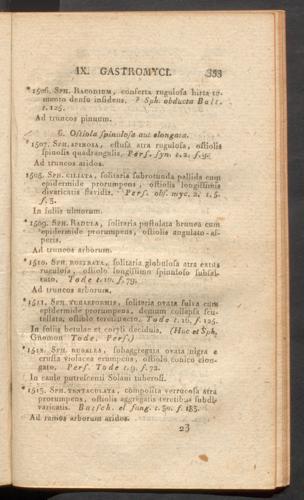 IX. GASTROMYCI. 353
*1506. SPH. RACODIUM, conferta rugulosa hirta to-
mento denso insidens. ? Sph. obducta Bolt.
t. 125.
Ad truncos pinuum.
G. Ostiola spinulosa aut elongata.
*1507. SPH. SPINOSA, effusa atra rugulosa, ostiolis
spinosis quadrangulis. Pers. syn. t. 2. f. 9.
Ad truncos aridos.
1508. SPH. CILIATA, solitaria subrotunda pallida cum
epidermide prorumpens, ostiolis longissimis
divaricatis flavidis. Pers. obs. myc. 2. t. 5.
f. 3.
In foliis ulmorum.
*1509. SPH. RADULA, solitaria pustulata brunea cum
epidermide prorumpens, ostiolis angulato-as-
peris.
Ad truncos arborum.
*1510. SPH. ROSTRATA, solitaria globulosa atra extus
rugulosa, ostiolo longissimo spinuloso subfal-
cato. Tode t. 10. f. 79.
Ad truncos arborum.
*1511. SPH. TUBAEFORMIS, solitaria ovata fulva cum
epidermide prorumpens, demum collapsa scu-
tellata, ostiolo tereti recto. Tode t. 16. f. 128.
In foliis betulae et coryli deciduis. (Huc et Sph.
Gnomon Tode. Pers.)
*1512. SPH. BUBALES, subaggregata ovata nigra e
crusta violacea erumpens, ostiolo conico elon-
gato. Pers. Tode t. 9. f. 72.
In caule putrescenti Solani tuberosi.
*1513. SPH. TENTACULATA, composita verrucosa atra
prorumpens, ostiolis aggregatis teretibus subdi-
varicatis. Batsch. el fung. t. 30. f. 183.
Ad ramos arborum aridos.
23